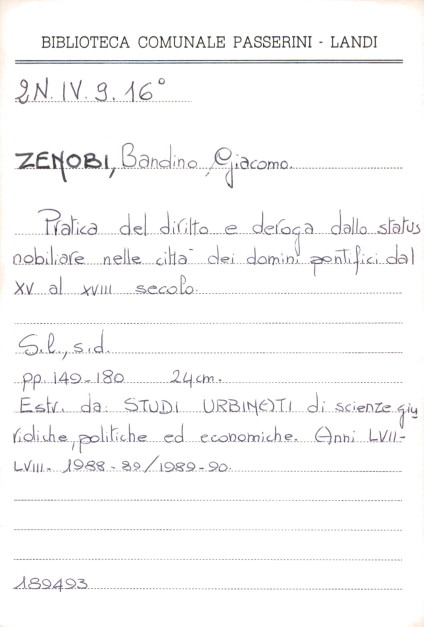 BIBLIOTECA COMUNALE PASSERINI - LANDI
2N. IV. 9. 16°
ZENOBI, Bandino, Giacomo.
Pratica del diritto e deroga dallo status
nobiliare nelle città dei domini pontifici dal
XV al XVIII secolo.
S.l., s.d.
pp. 149-180 24 cm.
Estr. da: STUDI URBINATI di scienze giu
ridiche, politiche ed economiche. Anni LVII-
LVIII. 1988-89/1989-90.
189493